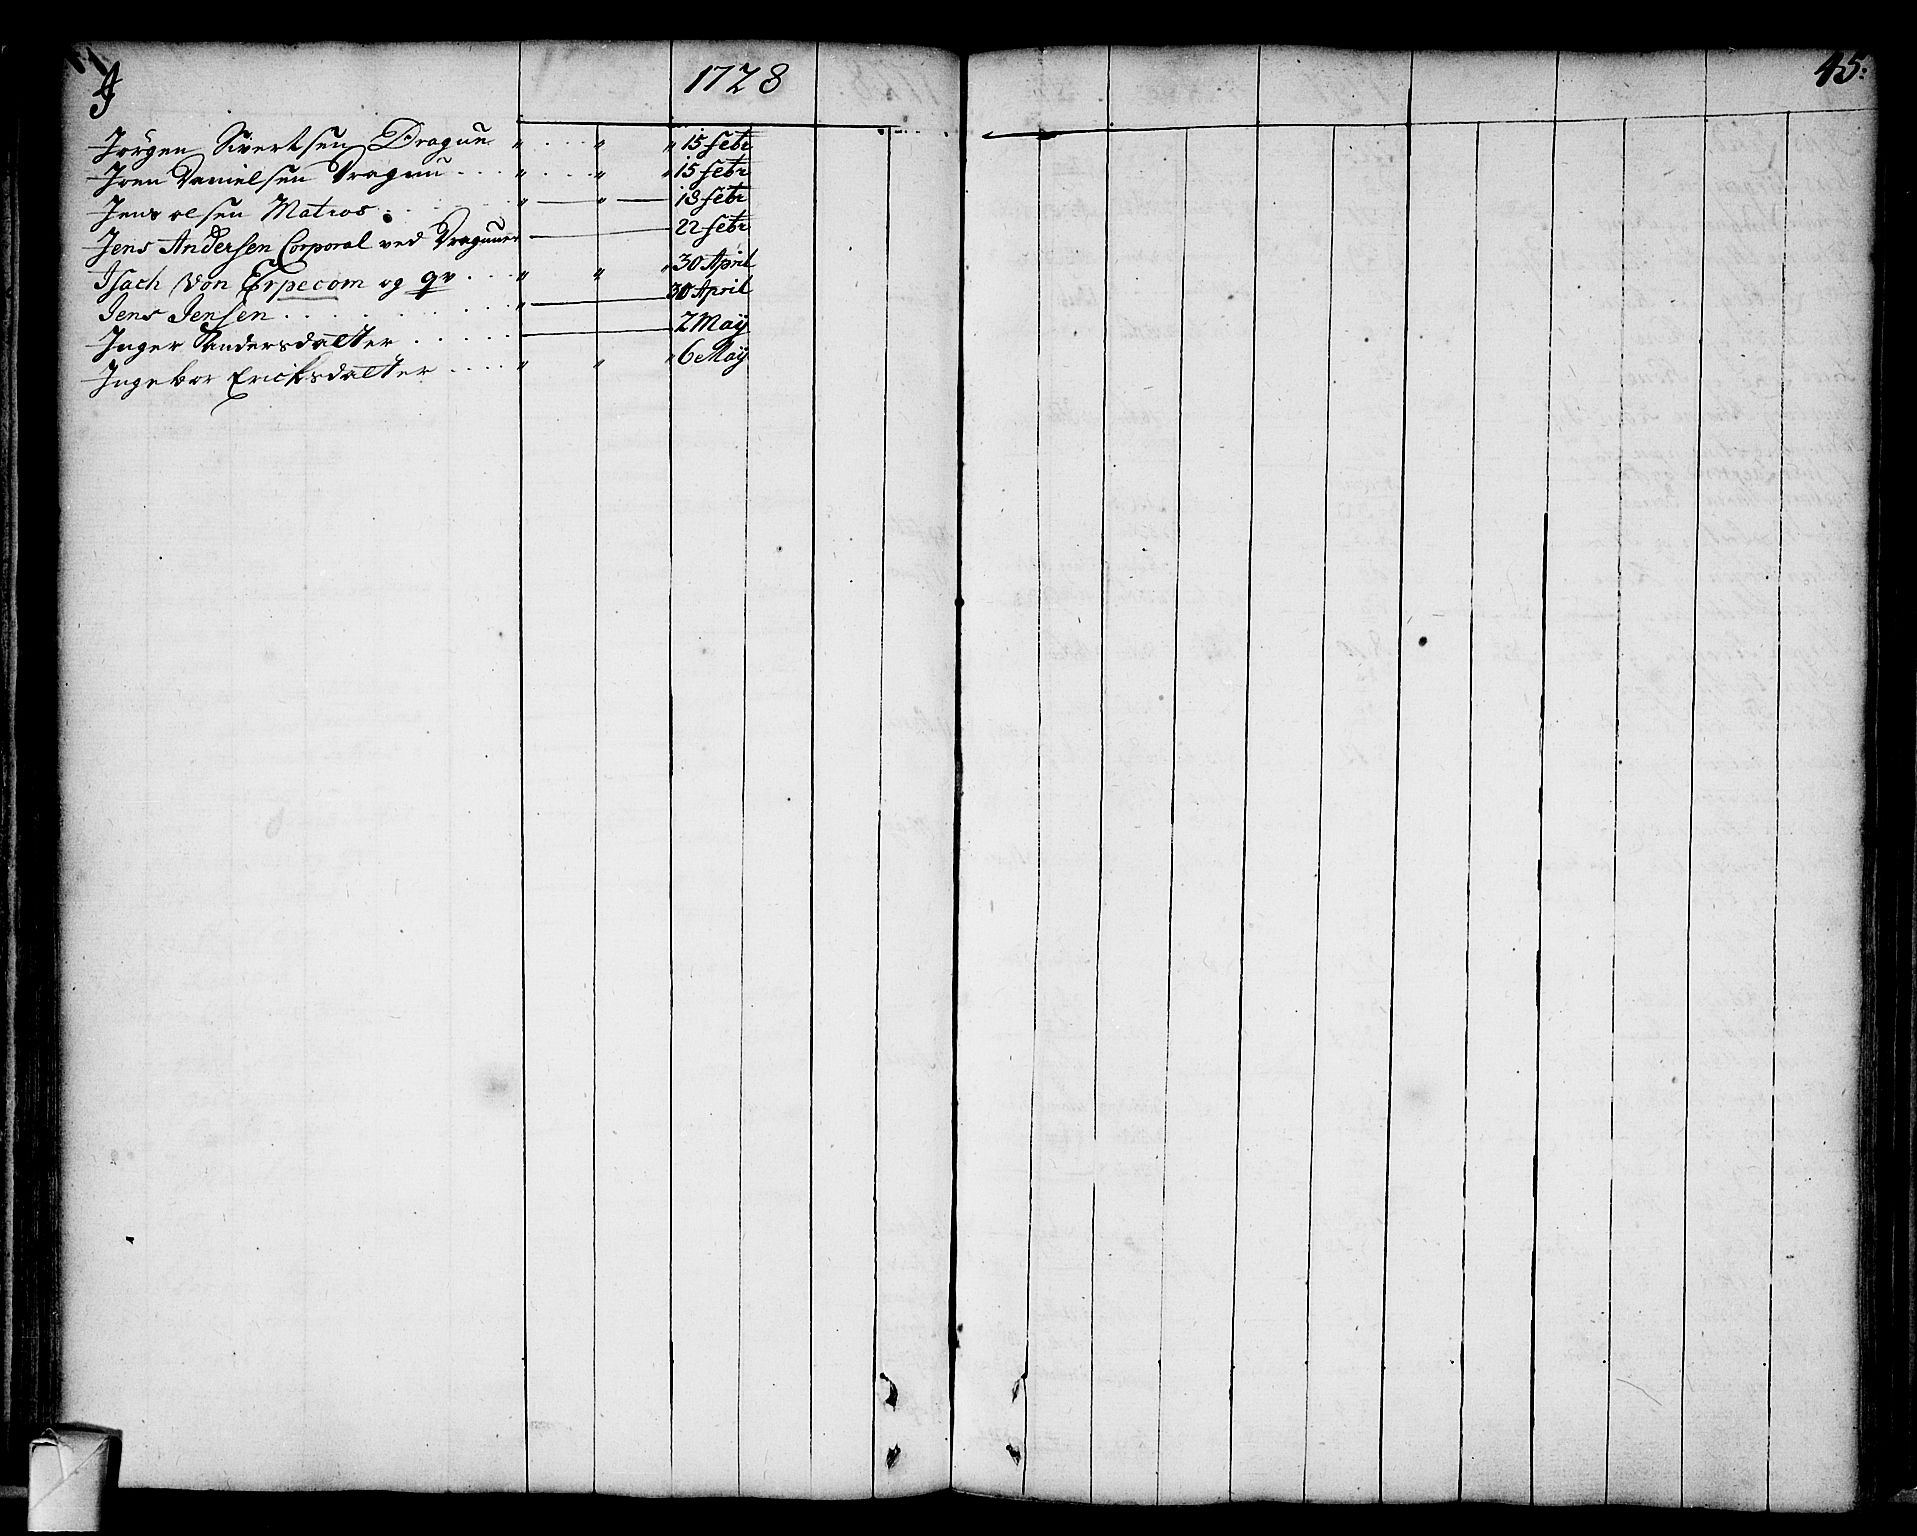 J
1728
45:
Jörgen Sivertsen Dragun " " " 15 febr
Joen Danielsen Dragun " " " 15 febr
Jens olsen Matros " " 18 febr
Jens Andersen Corporal ved Draguner 22 febr
Isach von Erpecom og qv " " " 30 April
Jens Jensen " 30 April
Inger Andersdatter 2 Maÿ
Ingebor Ericksdatter " " " 6 Maÿ